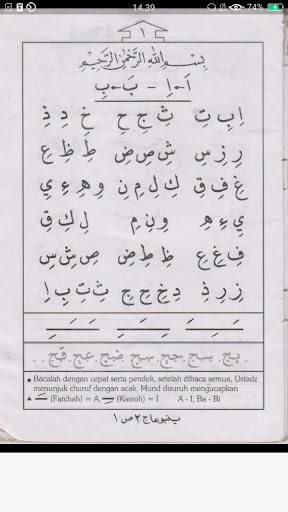 14.39 74%
١
بِسْمِ اللهِ الرَّحْمٰنِ الرَّحِيْمِ
اَ-اِ - بَ-بِ
اِ بِ تِ ثِ جِ حِ خِ دِ ذِ
رِ زِ سِ شِ صِ ضِ طِ ظِ عِ
غِ فِ قِ كِ لِ مِ نِ وِ هِ ءِ يِ
يِ ءِ هِ وِ نِ مِ لِ كِ قِ
فِ غِ عِ ظِ طِ ضِ صِ شِ سِ
زِ رِ ذِ دِ خِ حِ جِ ثِ تِ بِ اِ
▪ Bacalah dengan cepat serta pendek, setelah dibaca semua, Ustadz
menunjuk churuf dengan acak. Murid disuruh mengucapkan
▲ (Fatchah) = A, (Kasroh) = I A - I, Ba - Bi
ينبوعا ج ٢ ص ١